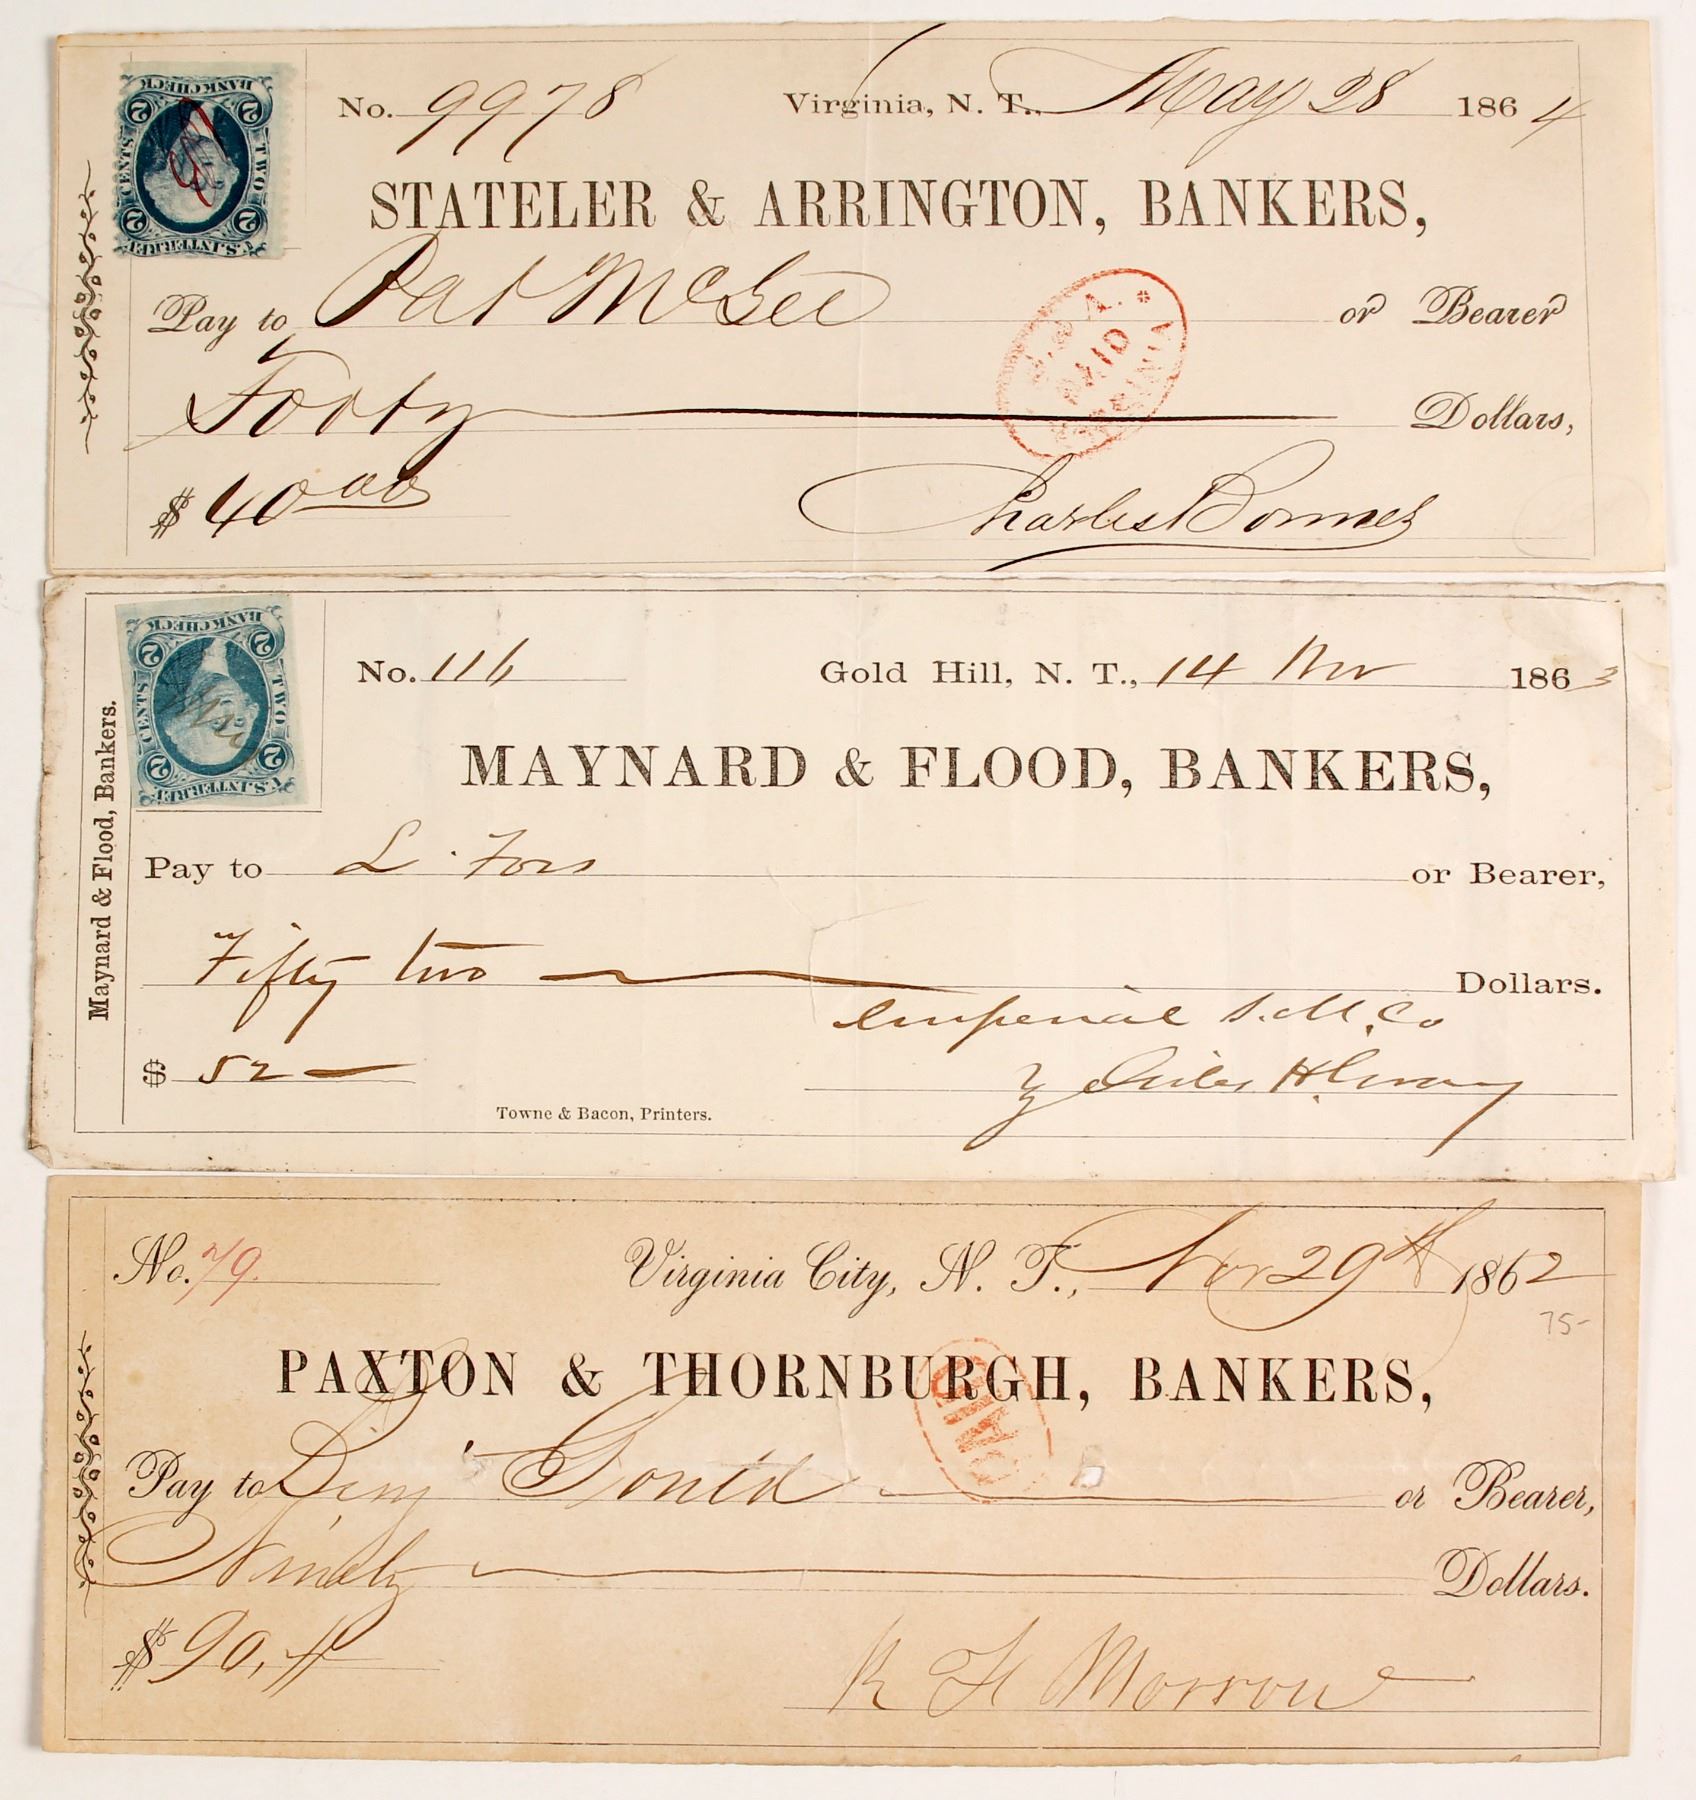 BANK CHECK
2 2
CENTS TWO
2 2
U.S. INTER. REV.
No. 9978 Virginia, N. T., May 28 1864
STATELER & ARRINGTON, BANKERS,
Pay to Pat McGee or Bearer
Forty Dollars,
$ 40.00
S. & A. *
PAID
VIRGINIA
Charles Bonner
BANK CHECK
2 2
CENTS TWO
2 2
U.S. INTER. REV.
Maynard & Flood, Bankers.
No. 116 Gold Hill, N. T., 14 Nov 1863
MAYNARD & FLOOD, BANKERS,
Pay to L. or Bearer,
Fifty two Dollars.
Imperial S. M. Co
$ 52
Towne & Bacon, Printers.
No. 79. Virginia City, N. T., Nov 29th 1862
75-
PAXTON & THORNBURGH, BANKERS,
PAID
Pay to or Bearer,
Ninety Dollars.
$ 90.
Morrow